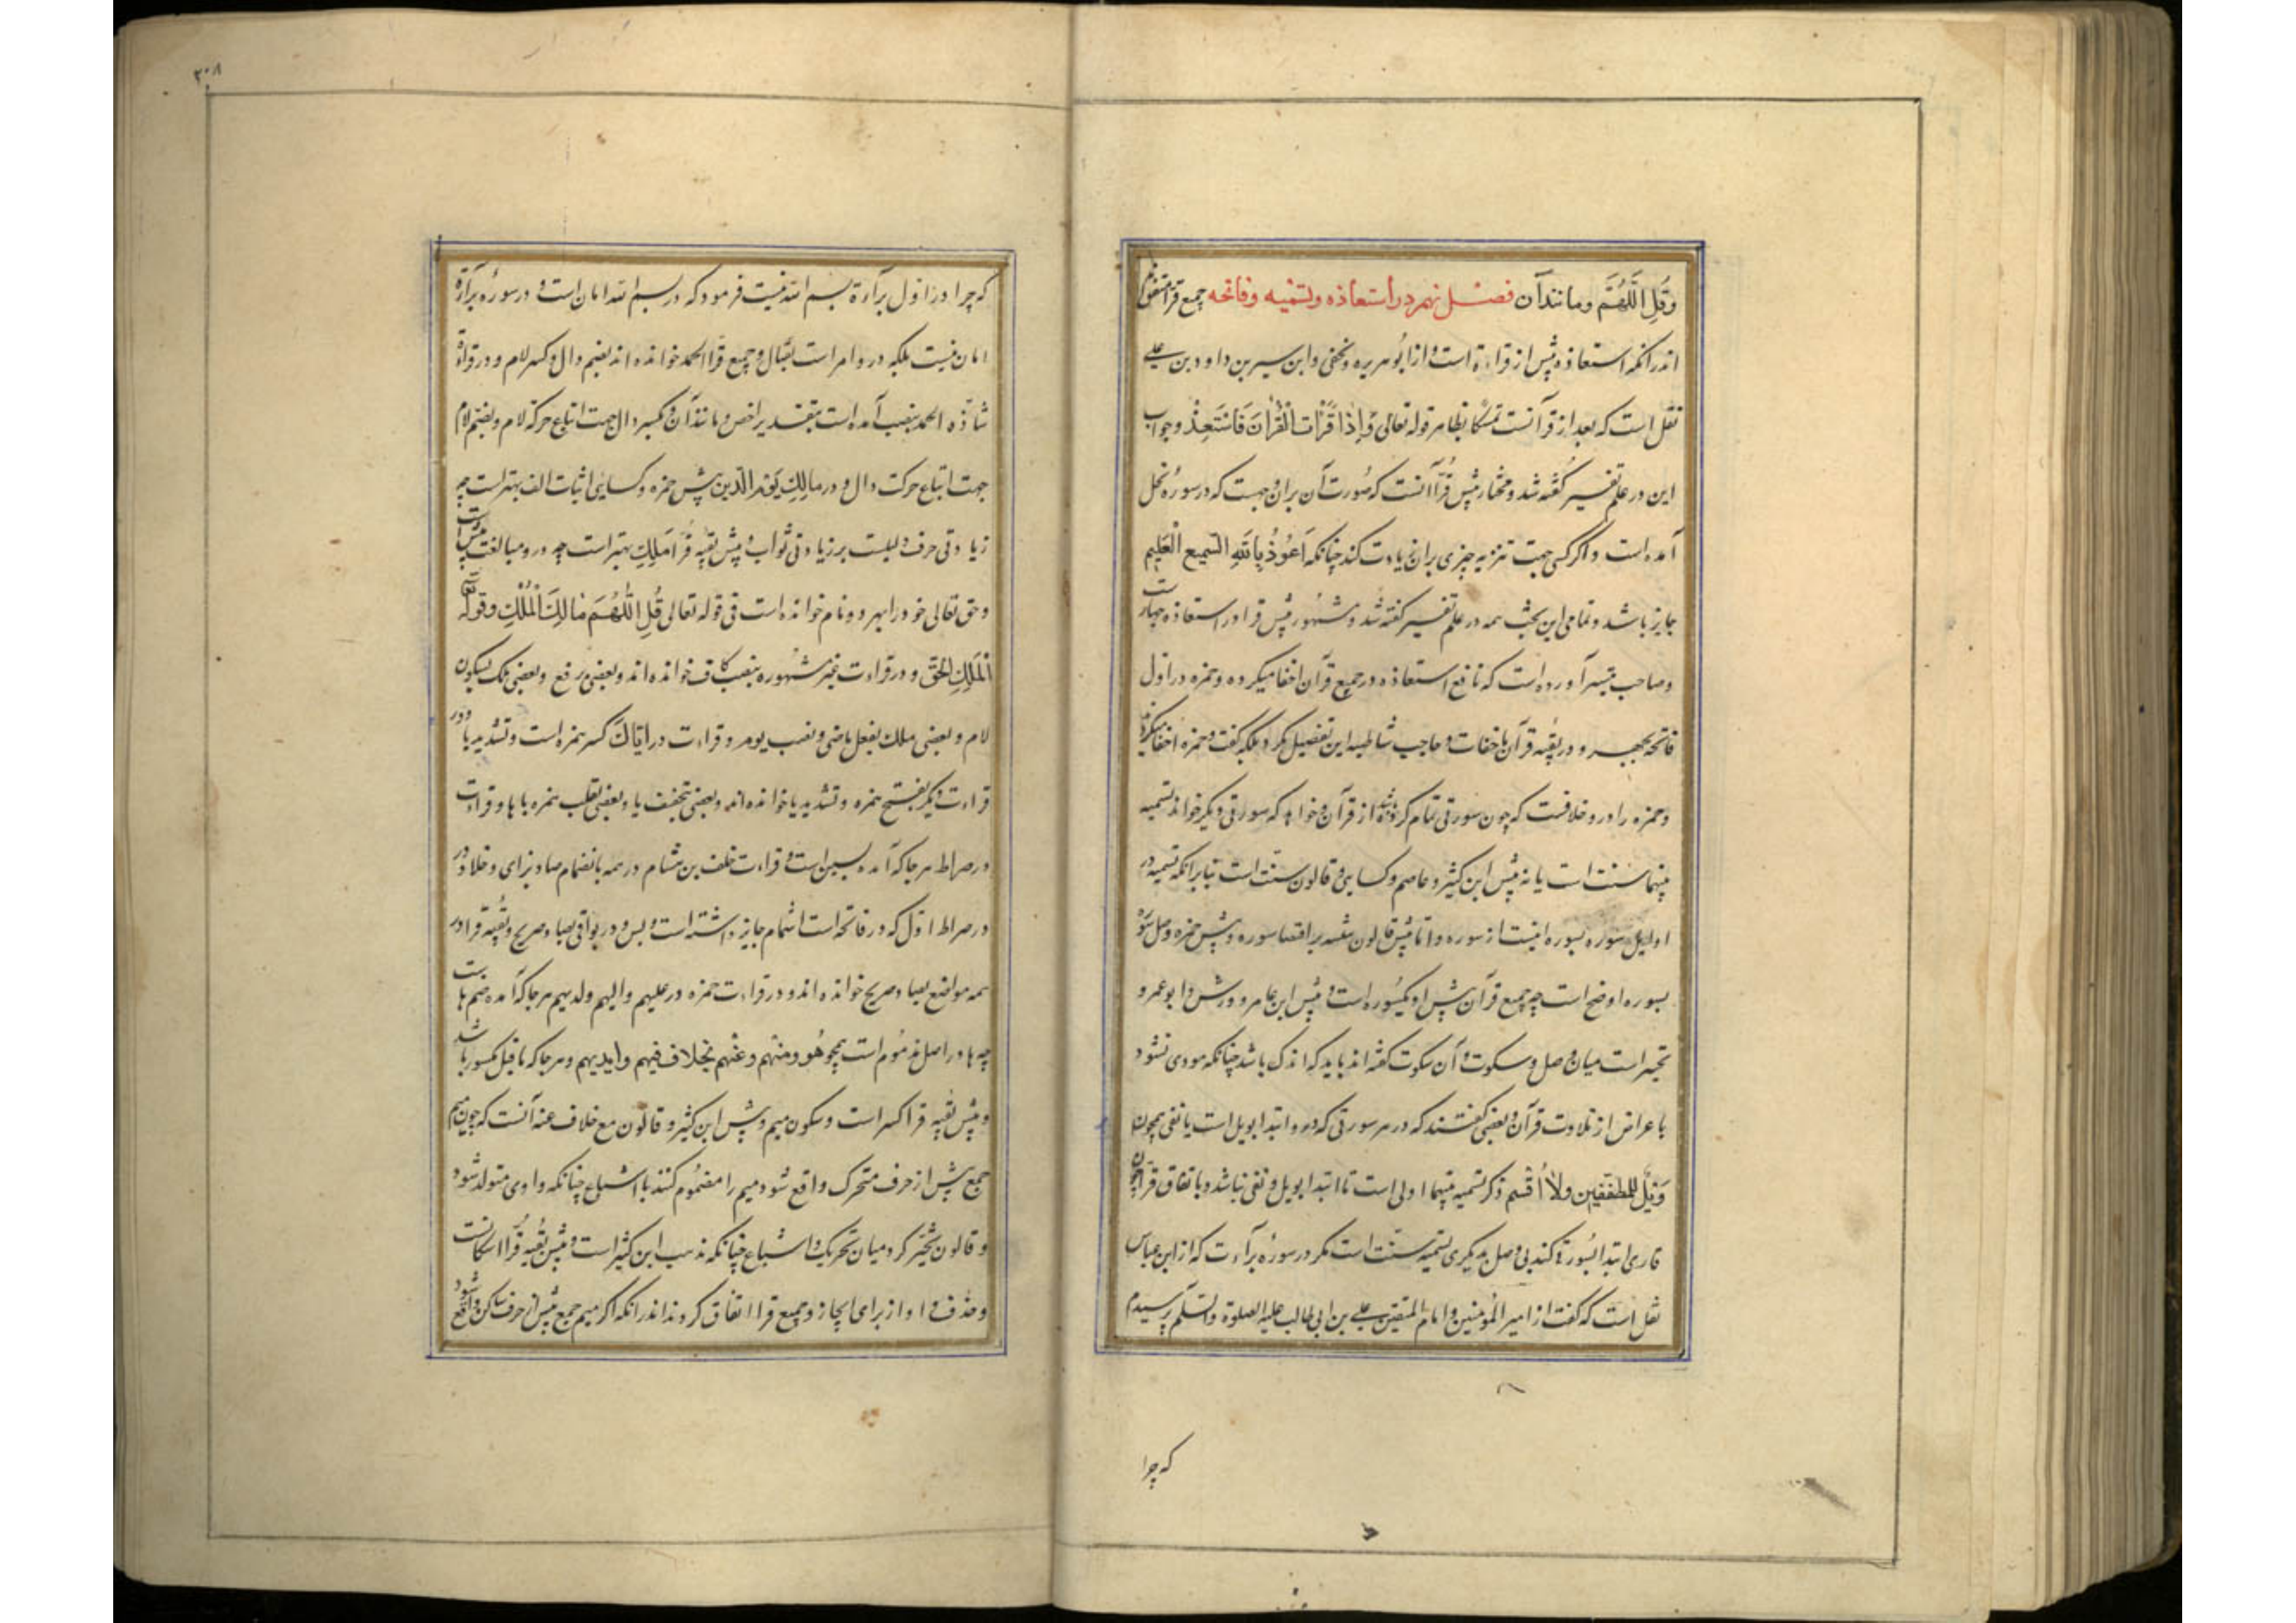 وَقُلِ اللَّهُمَّ ومانند آن فصل نهم در استعاذه وتسمیه وفاتحه جمیع قرا متفق‌اند
اندر انکه استعاذه پیش از قراءة است و از ابوهریره ونخعی وابن سیرین داود بن علی
نقل است که بعد از قرآنست تمسکا بظاهر قوله تعالی وَاِذَا قَرَأتَ الْقُرآنَ فَاسْتَعِذْ وجواب
این در علم تفسیر گفته شد ومختار پیش قرّا آنست که صورت آن بران وجهست که در سورۀ نحل
آمده است واکر کسی جهت تنزیه چیزی بران زیادت کند چنانکه اَعُوذُ بِاللهِ السَّمیعِ الْعَلیمِ
جایز باشد وتمامی این بحث همه در علم تفسیر گفته شد ومشهور پیش قرا در استعاذه جهار است
وصاحب تیسیر آورده است که نافع استعاذه در جمیع قرآن اخفا میکرده وحمزه در اول
فاتحه بجهر و در بقیه قرآن باخفات وصاحب شاطبیه این تفصیل نکرد بلکه گفت وحمزه اخفا میکردند
وحمزه را درو خلافست که چون سورتی تمام کرده شد از قرآن وخواهد که سورتی دیکر خواند تسمیه
بینهما سنت است یا نه پیش ابن کثیر وعاصم وکسایی وقالون سنت است بنابر انکه تسمیه در
اوایل سوره بسوره اینست از سوره واما پیش قالون تنبیه بر انقضا سوره وپیش حمزه وصل سوره
بسوره اوضح است چه جمیع قرآن پیش او یکسوره است و پیش ابن عامر وورش وابو عمرو
تخییر است میان وصل وسکوت و آن سکوت گفته اند باید که اندک باشد چنانکه مودی نشود
باعراض از تلاوت قرآن وبعضی گفتند که در هر سورتی که درو ابتدا بویل است یا نفی همچون
وَیْلٌ للمطفّفین ولا اُقسم ذکر تسمیه بینهما اولی است تا ابتدا بویل ونفی نباشد وباتفاق قرا چون
قاری ابتدا بسورة کند بی وصل بدیکری تسمیه سنّت است مکر در سورۀ برآءت که از ابن عباس
نقل است که گفت از امیر المؤمنین وامام المتقین علی بن ابی طالب علیه الصلوة والسلم پرسیدم
که چرا
۳۰۸
که چرا در اول برآءة بسم الله نیست فرمود که در بسم الله امان است و در سورۀ برآءة
امان نیست بلکه درو امر است بقتال وجمیع قرّا الحمد خوانده اند بضم دال وکسر لام ودر قراءة
شاذّه الحمد بنصب آمده است بتقدیر اخص ومانند آن وبکسر دال جهت اتباع حرکة لام وبضم لام
جهت اتباع حرکت دال و در مالِكِ یَوْمِ الدّین پیش حمزه وکسایی اثبات الف بهتر است چه
زیادتی حرف دلیلست بر زیادتی ثواب و پیش بقیه قرّا مَلِكِ بهتر است چه درو مبالغت بیش است
وحق تعالی خود را بهر دو نام خوانده است فی قوله تعالی قُلِ اللّٰهُمَّ مَالِكَ الْمُلْكِ وقوله تعالی
اَلْمَلِكُ الحَقُّ ودر قراءت غیر مشهوره بنصب کاف خوانده اند وبعضی برفع وبعضی ملک بسکون
لام وبعضی ملك بفعل ماضی ونصب یوم وقراءت در ایّاكَ کسر همزه است وتشدید یا ودر
قراءت دیکر بفتح همزه وتشدید یا خوانده اند وبعضی بتخفیف یا وبعضی بقلب همزه با ها وقراءت
در صراط هر جا که آمده بسین است و قراءت خلف بن هشام در همه باشمام صاد بزای وخلاد در
در صراط اول که در فاتحه است اشمام جایز داشته است وبس ودر بواقی بصاد صریح وبقیه قرا در
همه مواضع بصاد صریح خوانده اند ودر قراءت حمزه در علیهم والیهم ولدیهم هر جا که آمده ضم ها است
چه ها در اصل مضموم است همچو هُو ومنهم وعنهم بخلاف فیهم وایدیهم وهر جا که ماقبل مکسور باشد
وپیش بقیه قرا کسر است وسکون میم وپیش ابن کثیر وقالون مع خلاف عنه آنست که چون میم
جمع پیش از حرف متحرک واقع شود میم را مضموم کنند با اشباع چنانکه واوی متولد شود
وقالون مخیّر کرد میان تحریک و اشباع چنانکه مذهب ابن کثیر است وپیش بقیه قرّا اسکانست
وحذف واو از برای ایجاز وجمیع قرا اتفاق کردند اندر انکه اکر میم جمع پیش از حرف ساکن واقع شود